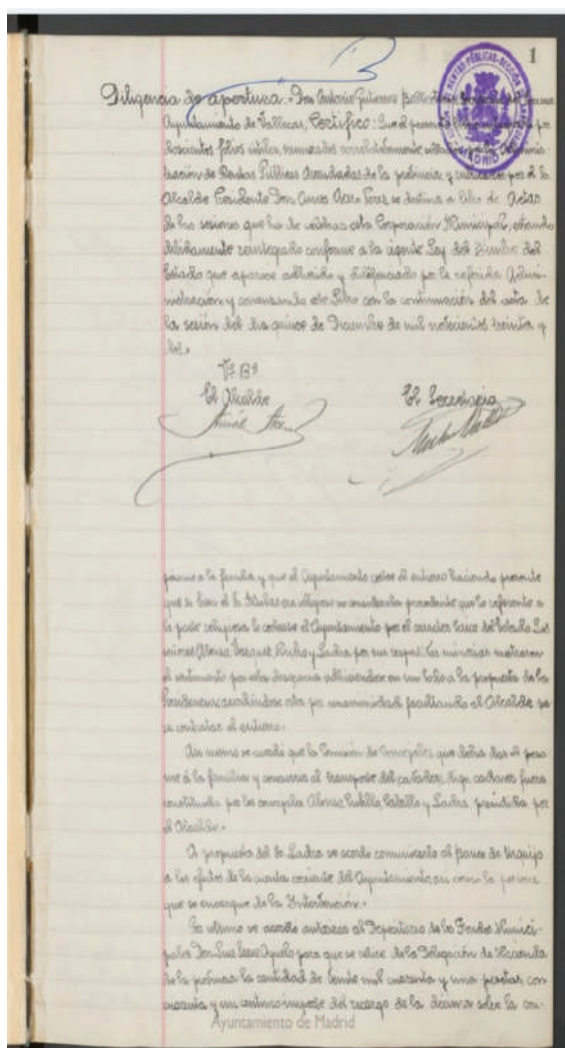 1
Diligencia de apertura.- Don Antonio Gutierrez
Ayuntamiento de Vallecas, Certifico: Que el presente
doscientos folios útiles, numerados correlativamente
tración de Rentas Públicas Arrendadas de la provincia y por el Sr
Alcalde Presidente Don Amós Acero Perez se destina a libro de Actas
de las sesiones que ha de celebrar esta Corporación Municipal, estando
debidamente reintegrado conforme a la vigente Ley del Timbre del
Estado que aparece adherido y diligenciado por la referida Admi-
nistración y comenzando este Libro con la continuación del acta de
la sesión del dia quince de Diciembre de mil novecientos treinta y
dos.
Vº Bº
El Alcalde El Secretario
pésame a la familia y que el Ayuntamiento costee el entierro haciendo presente
que si bien el Sr. era religioso no consideraba procedente que lo referente a
la parte religiosa lo costease el Ayuntamiento por el caracter laico del Estado. Los
señores Alonso, Vazquez, y Ladra por sus minorias mostraron
el sentimiento por esta desgracia adhiriendose en un todo a la propuesta de la
Presidencia, acordándose esta por unanimidad facultando al Alcalde pa
ra contratar el entierro.
Asi mismo se acordó que la Comisión de Concejales que debia dar el pesa
me á la familia y concurrir al transporte del cadaver, digo cadaver fuera
constituida por los concejales Alonso, Cabello y Ladra presidida por
el Alcalde.
A propuesta del Sr Ladra se acordo comunicarlo al Banco de Urquijo
a los efectos de la cuenta corriente del Ayuntamiento, asi como la persona
que se encargue de la Intervención.
Por ultimo se acordo autorizar al Depositario de los Fondos Munici-
pales Don Luis para que se retire de la Delegación de Hacienda
de la provincia la cantidad de mil cuarenta y una pesetas, con
cuarenta y un centimo importe del recargo de la décima sobre la con-
Ayuntamiento de Madrid